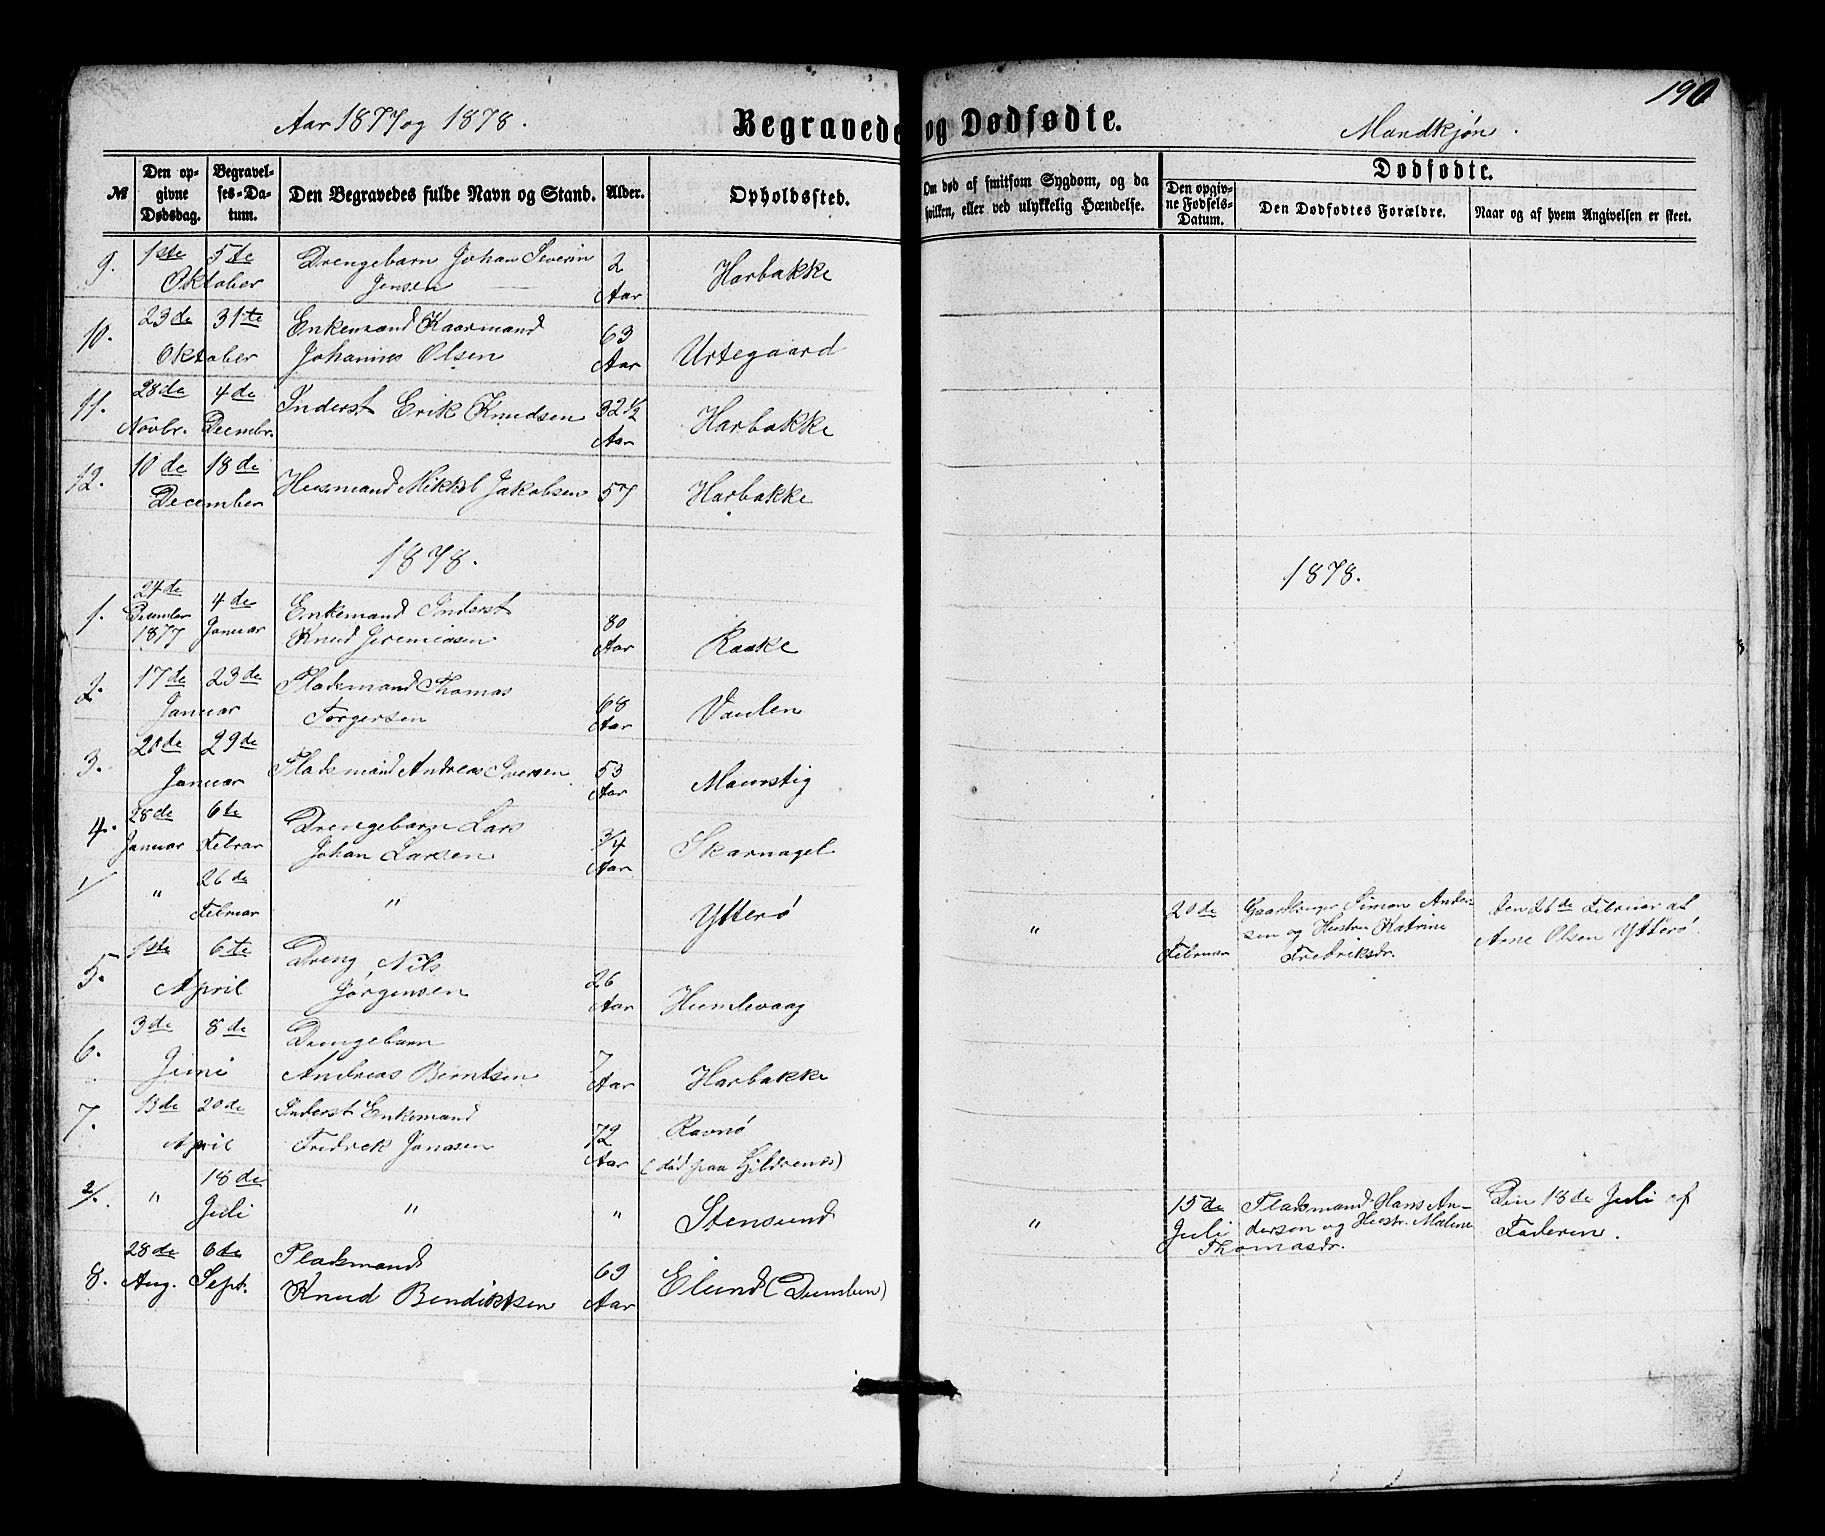 190
Aar 1877 og 1878.
Begravede og Dødfødte.
Mandkjøn.
№
Den opgivne Dødsdag.
Begravelses-Datum.
Den Begravedes fulde Navn og Stand.
Alder.
Opholdssted.
Om død af smitsom Sygdom, og da hvilken, eller ved ulykkelig Hændelse.
Dødfødte.
Den opgivne Fødsels-Datum.
Den Dødfødtes Forældre.
Naar og af hvem Angivelsen er skeet.
9. 1ste 5te Drengebarn Johan Severin 2
Oktober Jensen Aar Harbakke
10. 23de 31te Enkemand Kaarmand 63
Oktober Johannes Olsen Aar Urtegaard
11. 28de 4de Inderst Erik Knudsen 32 1/2
Novbr. Decmbr. Aar Harbakke
12. 10de 18de Husmand Mikkel Jakobsen 57 Harbakke
December
1878.
1878.
1. 24de 4de Enkemand Inderst 80
December Januar Knud Jeremiasen Aar Raake
1877
2. 17de 23de Pladsmand Thomas 68
Januar Torgersen Aar Vaulen
3. 20de 29de Pladsmand Andreas Iversen 53
Januar Aar
4. 28de 6te Drengebarn Lars 3/4
Januar Februar Johan Larsen Aar Skarnagel
1/ " 26de " Ytterø " 20de Gaardbruger Simon Ander- den 26de Februar af
Februar sen og Hustru Katrine Arne Olsen Ytterø.
Februar Fredriksdr.
5. 1ste 6te Dreng Nils 26
April Jørgensen Aar Humlevaag
6. 3de 8de Drengebarn 7
Juni Andreas Berntsen Aar Harbakke
7. 13de 20de Inderst Enkemand 72 Ravnø
April Fredrek Jonassen Aar (død paa)
2/. " 18de " " Stensund " 15de Pladsmand Hans An- Den 18de Juli af
Juli Juli derson og Hustr. Malene Faderen.
Thomasdr.
8. 28de 6de Pladsmand 69
Aug. Sept. Knud Bendiktsen Aar Elund